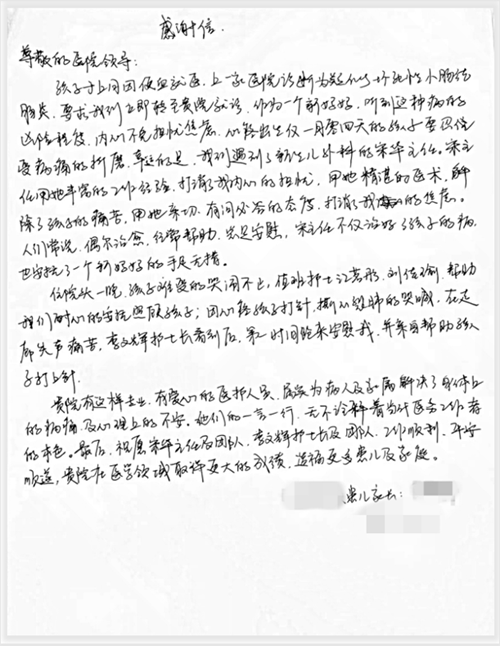 感谢信
尊敬的医院领导:
孩子于上周因便血就医,上一家医院诊断为疑似坏死性小肠结
肠炎,要求我们立即转至贵院就诊,作为一个新妈妈,听到这种病的
凶险程度,内心不免担忧焦虑,心疼出生仅一月零四天的孩子要
受病痛的折磨,幸运的是,我们遇到了新生儿外科的宋华主任。宋主
任用她丰富的工作经验,打消了我内心的担忧,用她精湛的医术,解
除了孩子的痛苦,用她亲切、有问必答的态度,打消了我的焦虑。
人们常说,偶尔治愈,经常帮助,总是安慰,宋主任不仅治好了孩子的病,
也安抚了一个新妈妈的手足无措。
住院头一晚,孩子难受的哭闹不止,值班护士江若彤、刘佳瑜,帮助
我们耐心的安抚照顾孩子;因心疼孩子打针,撕心裂肺的哭喊,在走
廊失声痛苦,李文辉护士长看到后,第一时间跑来安慰我,并亲自帮助孩
子打上针。
贵院有这样专业、有爱心的医护人员,实为病人及家属解决了身体上
的病痛及心理上的不安。她们的一言一行,无不诠释着当代医务工作者
的本色。最后,祝愿宋华主任及团队、李文辉护士长及团队,工作顺利,平安
顺遂,贵院在医学领域取得更大的成绩,造福更多患儿及家庭。
患儿家长: